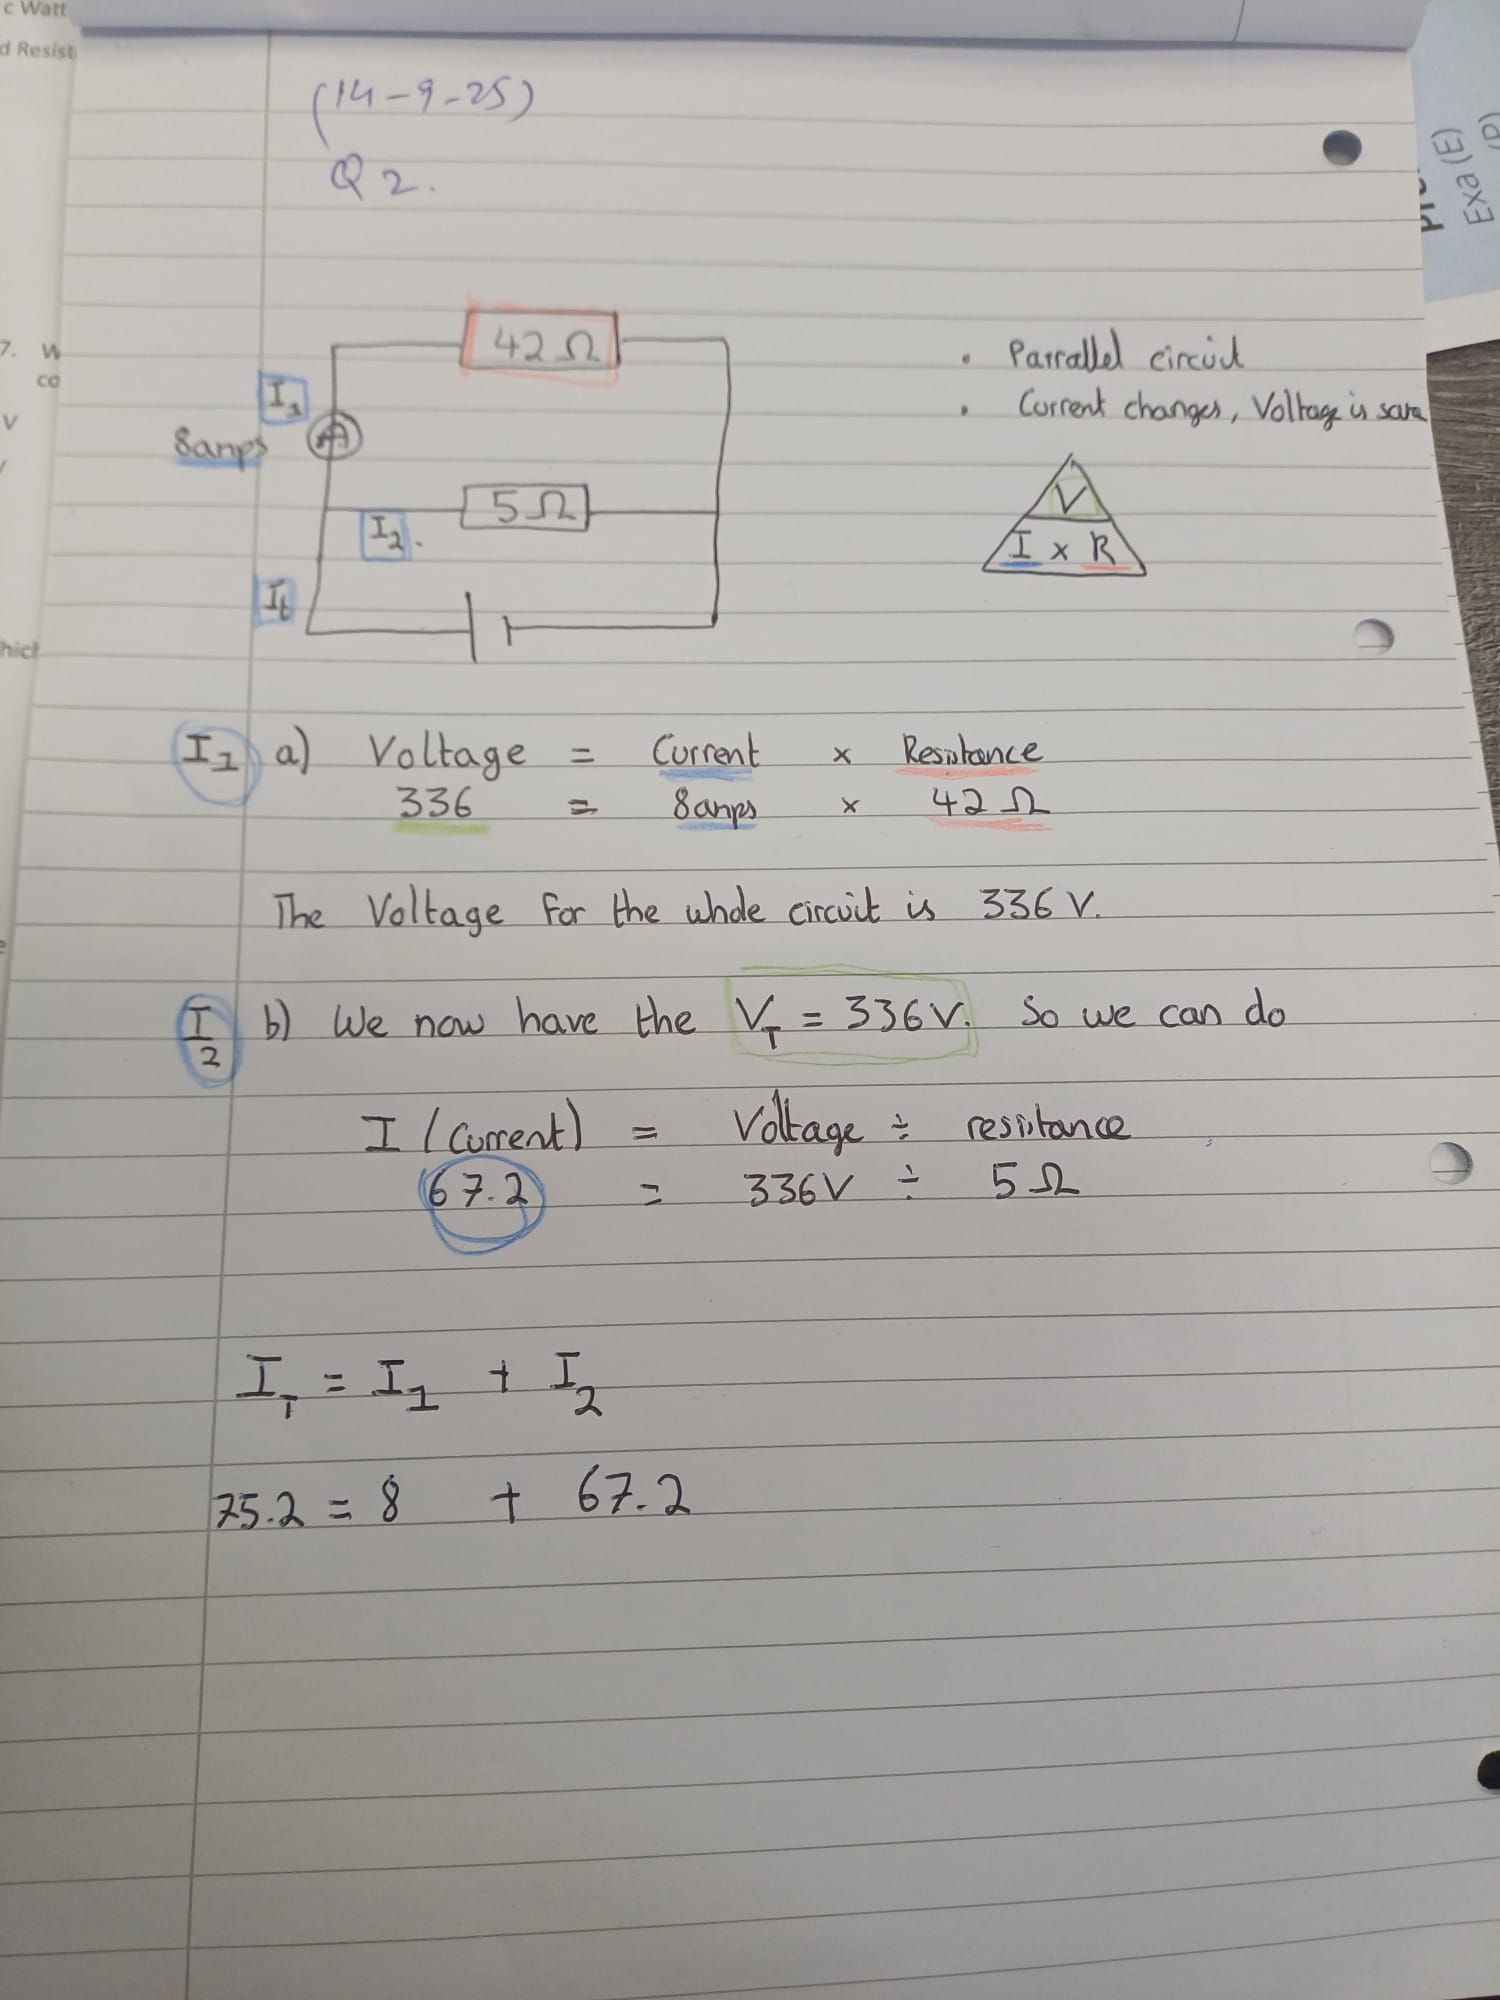 c Watt
d Resist
(14-9-25)
Q2.
7. W
co
V
hich
Exa (E)
42 Ω
I1
8amps
A
5 Ω
I2.
It
• Parrallel circuit
• Current changes, Voltage is
V
I x R
I1 a) Voltage = Current x Resistance
336 = 8amps x 42 Ω
The Voltage for the whole circuit is 336 V.
I2 b) We now have the VT = 336V. So we can do
I (Current) = Voltage ÷ resistance
67.2 = 336V ÷ 5 Ω
IT = I1 + I2
75.2 = 8 + 67.2